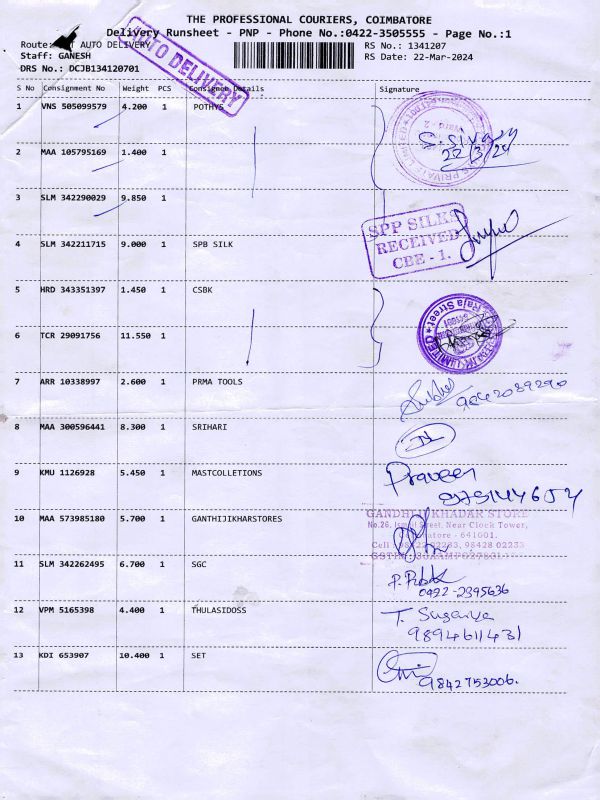 THE PROFESSIONAL COURIERS, COIMBATORE
Delivery Runsheet - PNP - Phone No.:0422-3505555 - Page No.:1
Route: AUTO DELIVERY
RS No.: 1341207
Staff: GANESH
RS Date: 22-Mar-2024
DRS No.: DCJB134120701
AUTO DELIVERY
S No Consignment No Weight PCS Consignee Details Signature
1 VNS 505099579 4.200 1 POTHYS
22/3/24
2 MAA 105795169 1.400 1
3 SLM 342290029 9.850 1
SPP SILKS
RECEIVED
CBE - 1.
4 SLM 342211715 9.000 1 SPB SILK
5 HRD 343351397 1.450 1 CSBK
Raja Street
6 TCR 29091756 11.550 1
7 ARR 10338997 2.600 1 PRMA TOOLS
9842039290
8 MAA 300596441 8.300 1 SRIHARI
9 KMU 1126928 5.450 1 MASTCOLLETIONS
Praveen
10 MAA 573985180 5.700 1 GANTHIJIKHARSTORES
GANDHIJI KHADAR STORE
Near Clock Tower,
Coimbatore - 641001.
11 SLM 342262495 6.700 1 SGC
0422-2395636
12 VPM 5165398 4.400 1 THULASIDOSS
9894611431
13 KDI 653907 10.400 1 SET
9842753006.